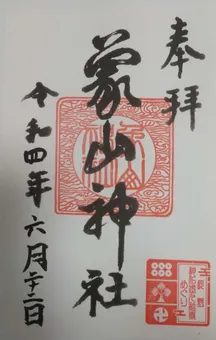 奉拝
象山神社
令和四年六月二十二日